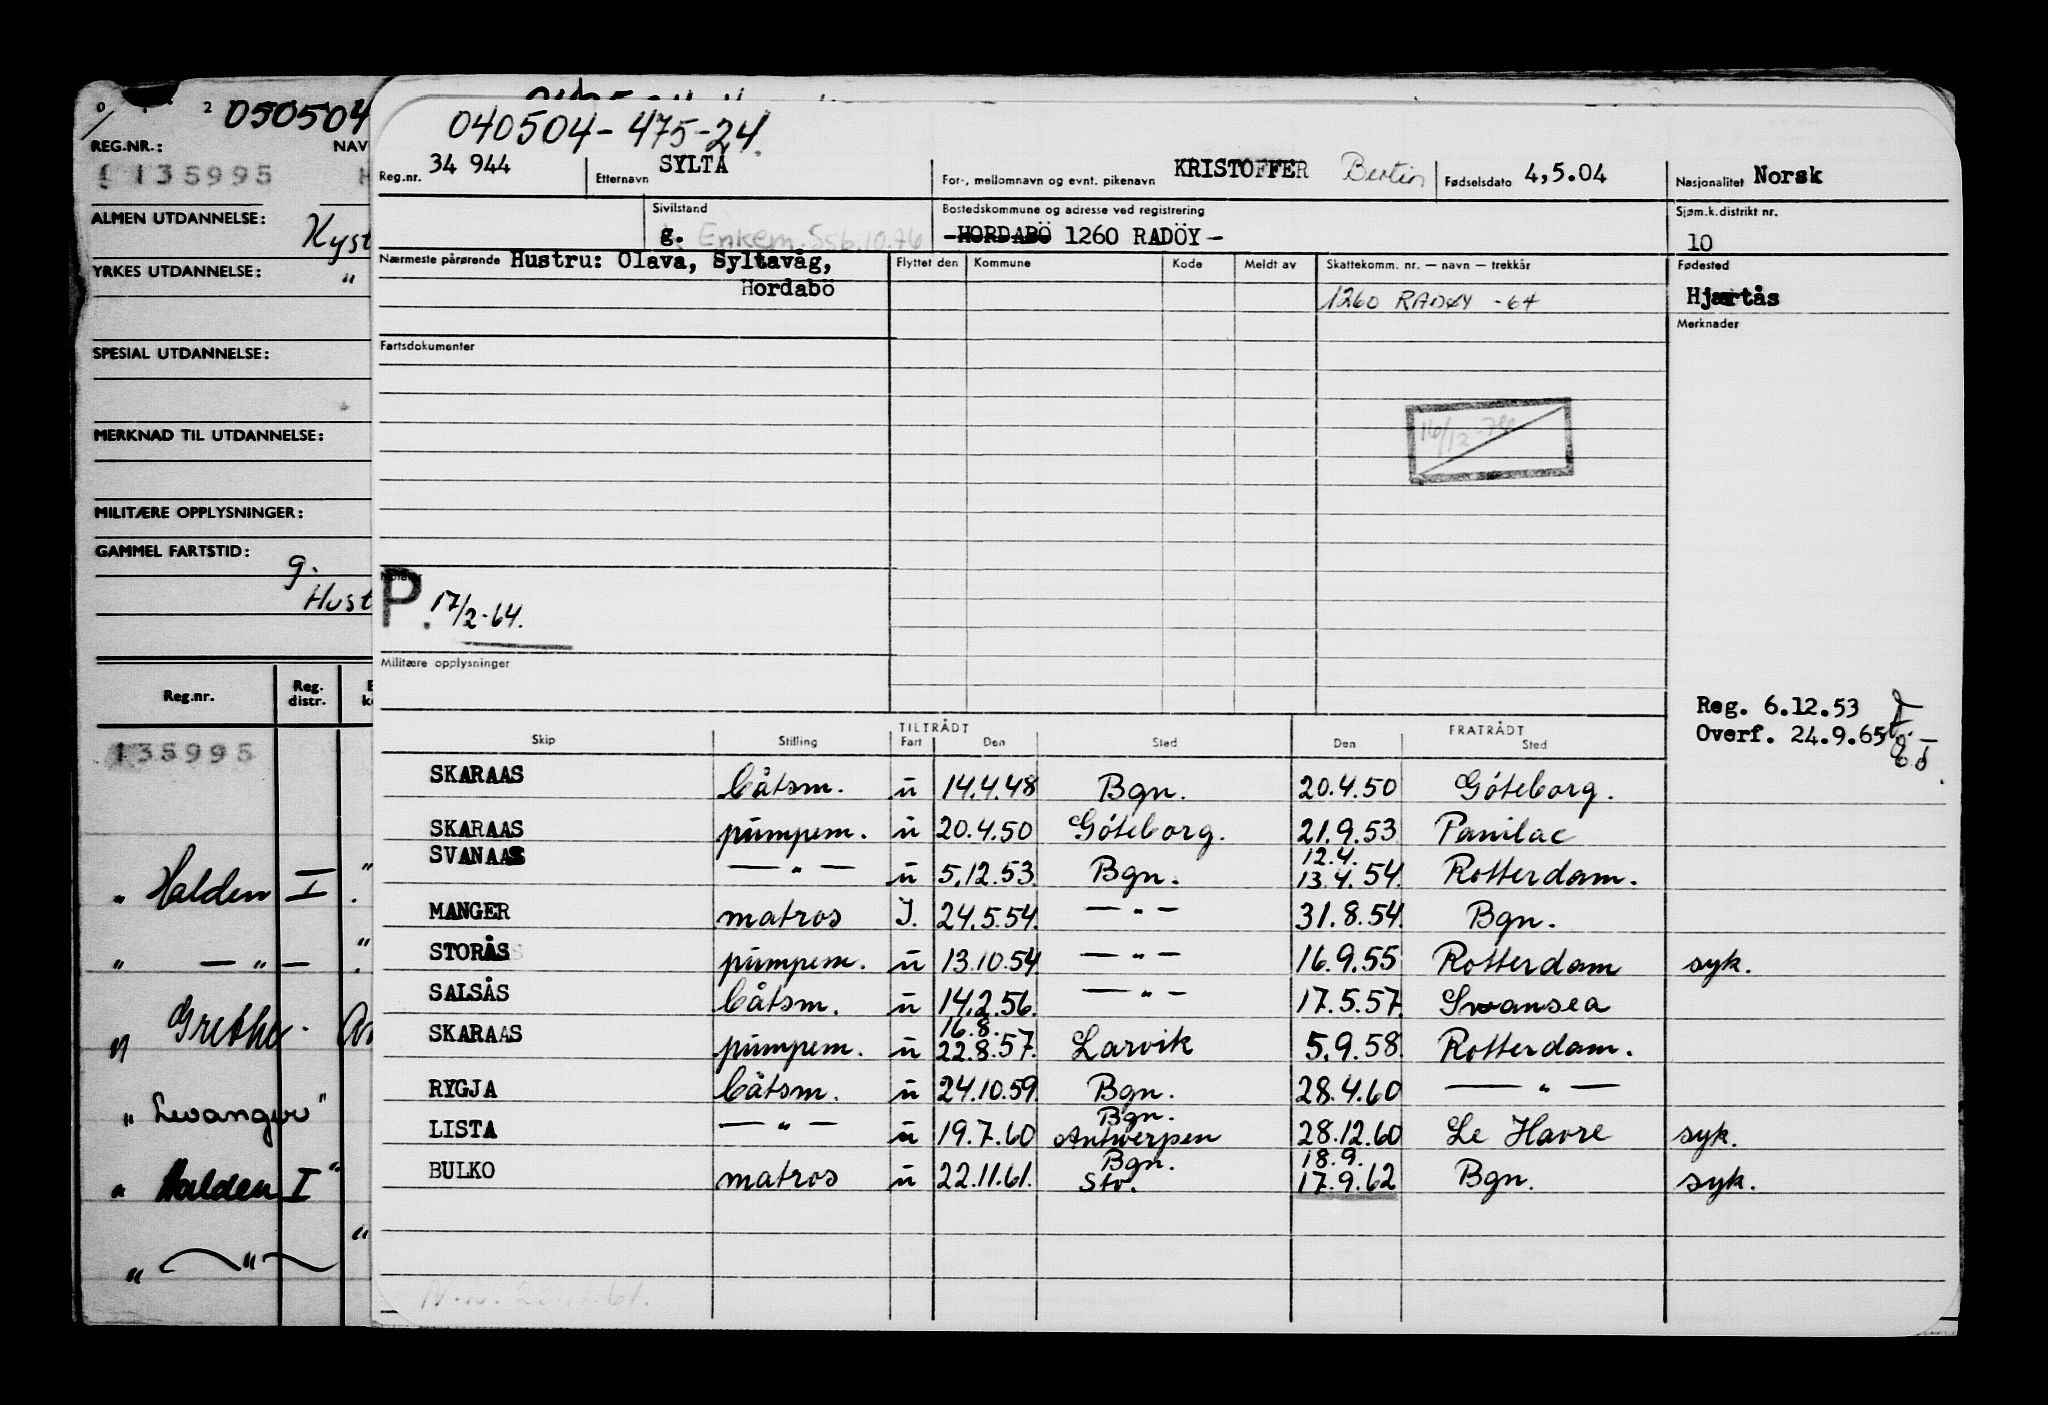 050504
REG.NR.: NAV
135995 H
ALMEN UTDANNELSE: Kyst
YRKES UTDANNELSE: "
SPESIAL UTDANNELSE:
MERKNAD TIL UTDANNELSE:
MILITÆRE OPPLYSNINGER:
GAMMEL FARTSTID:
g.
Hust
Reg.nr. Reg. distr.
135995
" Halden I "
" — " — "
" Grethe
" Levanger "
" Halden I "
" — " —
040504-475-24.
Reg.nr. 34 944 Etternavn SYLTA For-, mellomnavn og evnt. pikenavn KRISTOFFER Bertin Fødselsdato 4,5.04 Nasjonalitet Norsk
Sivilstand g. Enkem. Ssb. 10.76 Bostedskommune og adresse ved registrering -HORDABÖ 1260 RADÖY- Sjøm.k.distrikt nr. 10
Nærmeste pårørende Hustru: Olava, Syltavåg, Flyttet den Kommune Kode Meldt av Skattekomm. nr. — navn — trekkår Fødested
Hordabö 1260 RADØY -64 Hjærtås
Merknader
Fartsdokumenter
16/12-74
Notater
P. 17/2-64.
Militære opplysninger
Reg. 6.12.53
Overf. 24.9.65
TILTRÅDT FRATRÅDT
Skip Stilling Fart Den Sted Den Sted
SKARAAS båtsm. u 14.4.48 Bgn. 20.4.50 Göteborg.
SKARAAS pumpem. u 20.4.50 Göteborg. 21.9.53 Pauilac
12.4.
SVANAAS — " — u 5.12.53. Bgn. 13.4.54. Rotterdam.
MANGER matros I. 24.5.54. — " — 31.8.54. Bgn.
STORÅS pumpem. u 13.10.54. — " — 16.9.55 Rotterdam syk.
SALSÅS båtsm. u 14.2.56. — " — 17.5.57. Swansea
16.8.
SKARAAS pumpem. u 22.8.57. Larvik 5.9.58. Rotterdam.
RYGJA båtsm. u 24.10.59. Bgn. 28.4.60 — " —
Bgn.
LISTA — " — u 19.7.60 Antwerpen 28.12.60 Le Havre syk.
Bgn. 18.9.
BULKO matros u 22.11.61. Sto. 17.9.62 Bgn. syk.